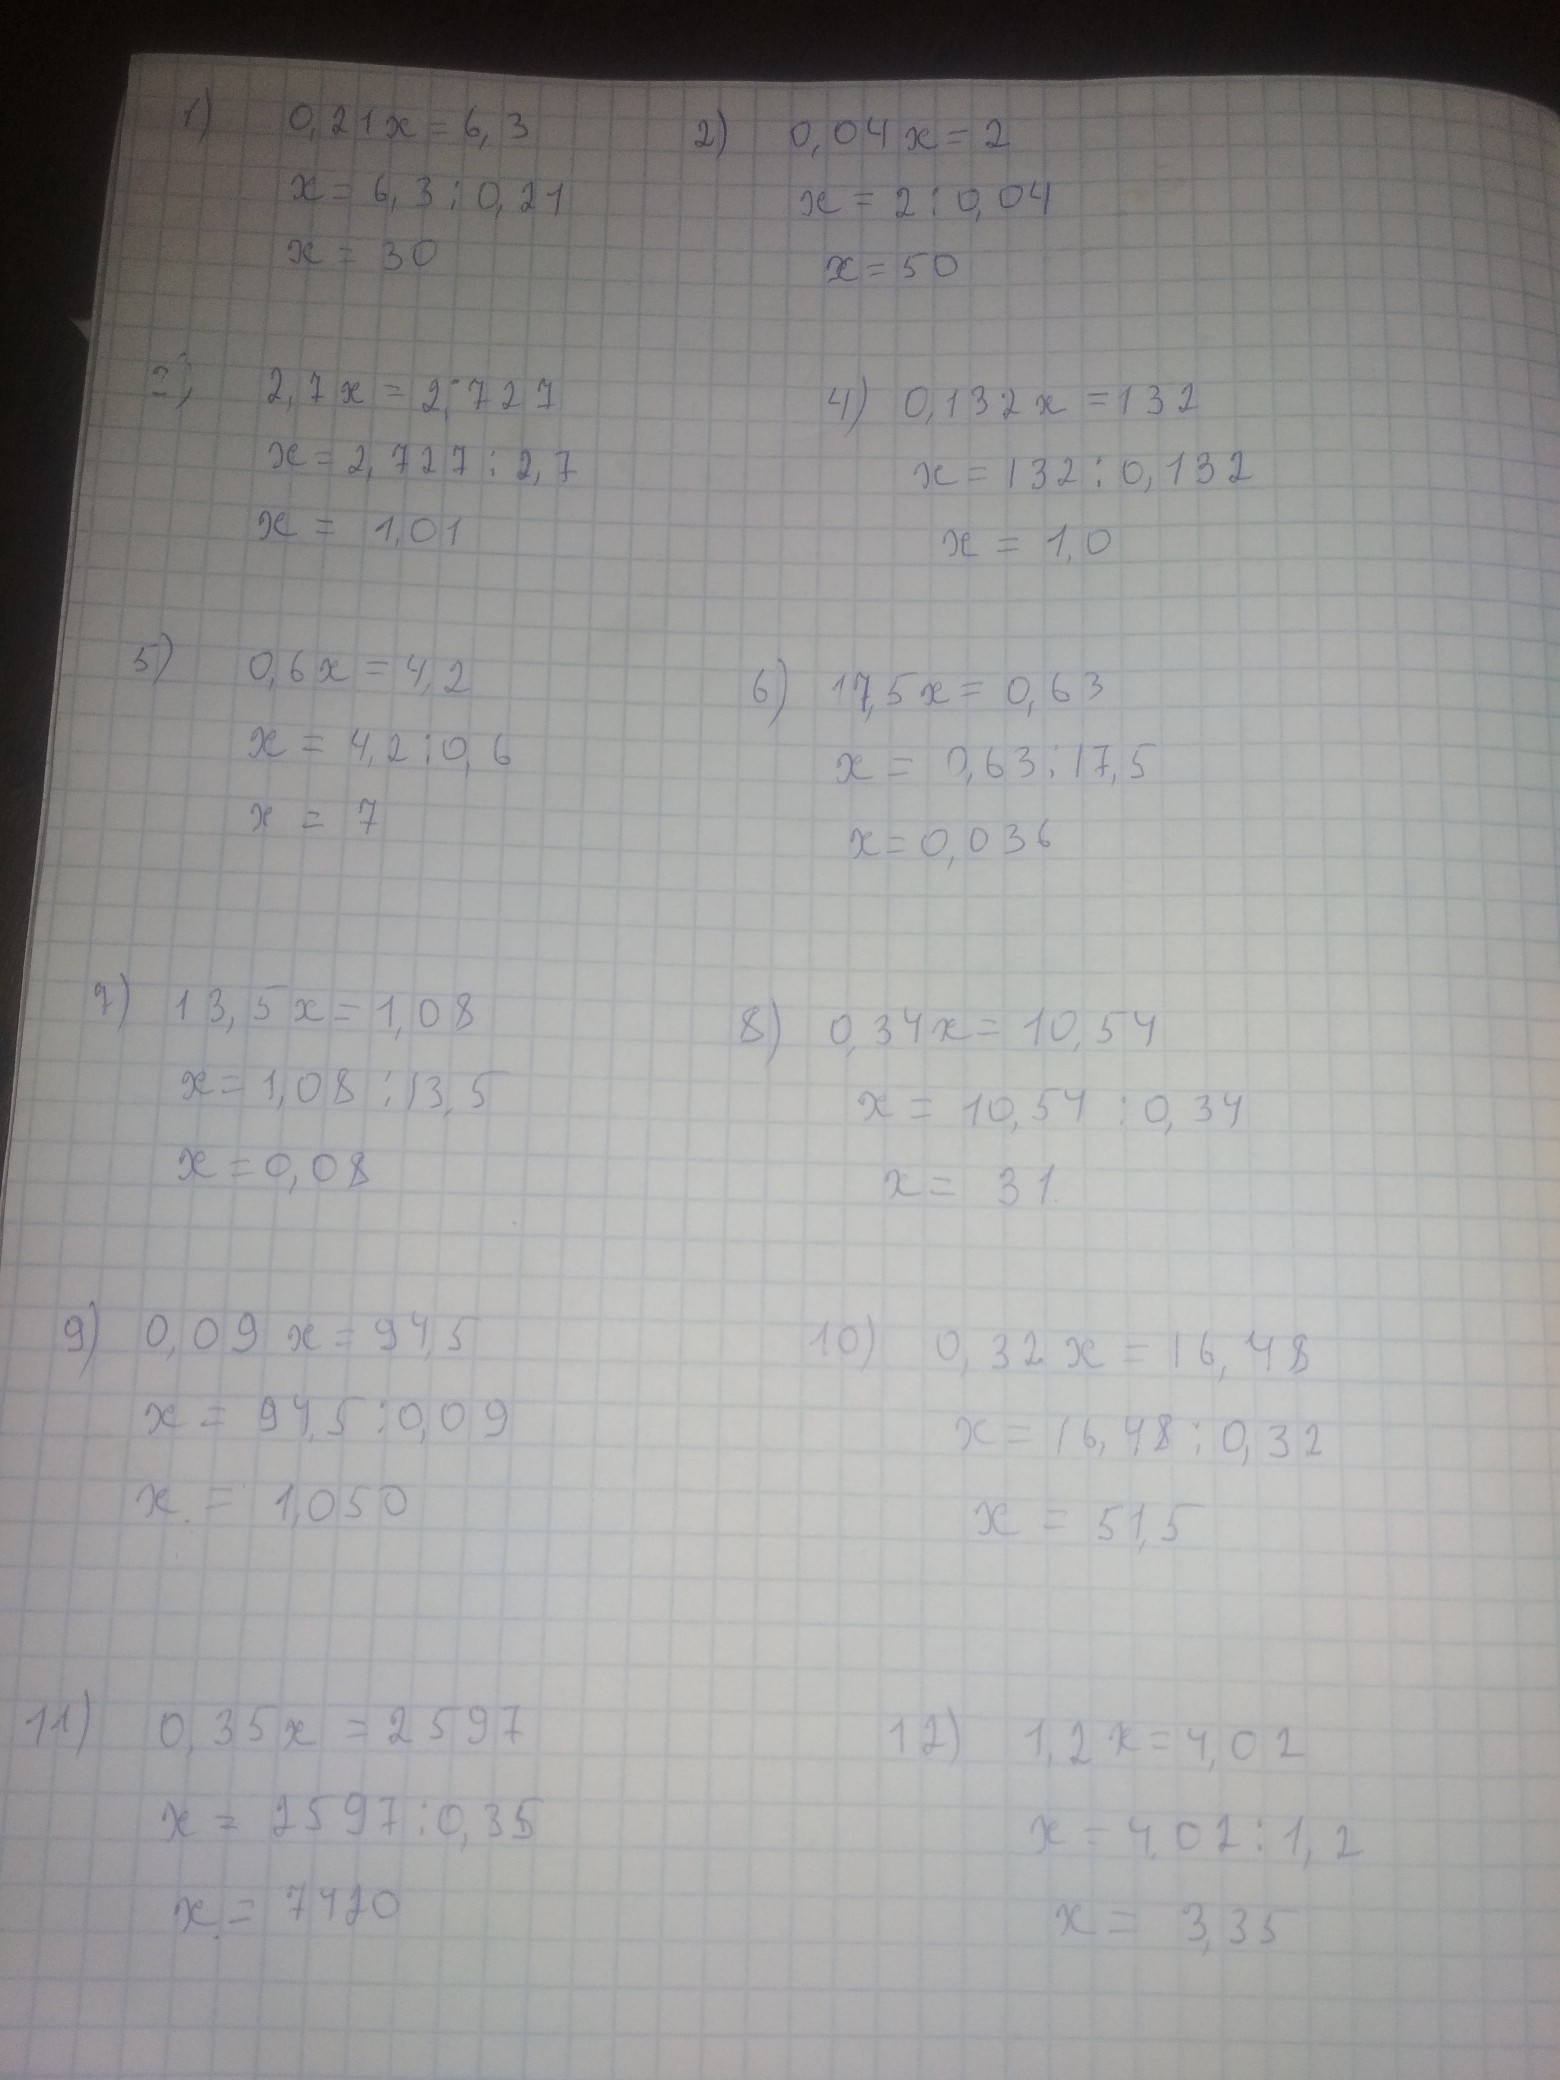 1) 0,21x = 6,3
x = 6,3 : 0,21
x = 30
2) 0,04x = 2
x = 2 : 0,04
x = 50
3) 2,7x = 2,727
x = 2,727 : 2,7
x = 1,01
4) 0,132x = 132
x = 132 : 0,132
x = 1,0
5) 0,6x = 4,2
x = 4,2 : 0,6
x = 7
6) 17,5x = 0,63
x = 0,63 : 17,5
x = 0,036
7) 13,5x = 1,08
x = 1,08 : 13,5
x = 0,08
8) 0,34x = 10,54
x = 10,54 : 0,34
x = 31
9) 0,09x = 94,5
x = 94,5 : 0,09
x = 1,050
10) 0,32x = 16,48
x = 16,48 : 0,32
x = 51,5
11) 0,35x = 2597
x = 2597 : 0,35
x = 7420
12) 1,2x = 4,02
x = 4,02 : 1,2
x = 3,35